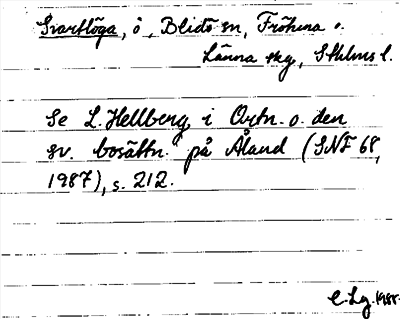 Svartlöga, ö, Blidö sn, Fröhuna o.
Länna skg, Sthlms l.
Se L. Hellberg i Ortn. o. den
sv. bosättn. på Åland (SNF 68,
1987), s. 212.
E. Lg. 1988.